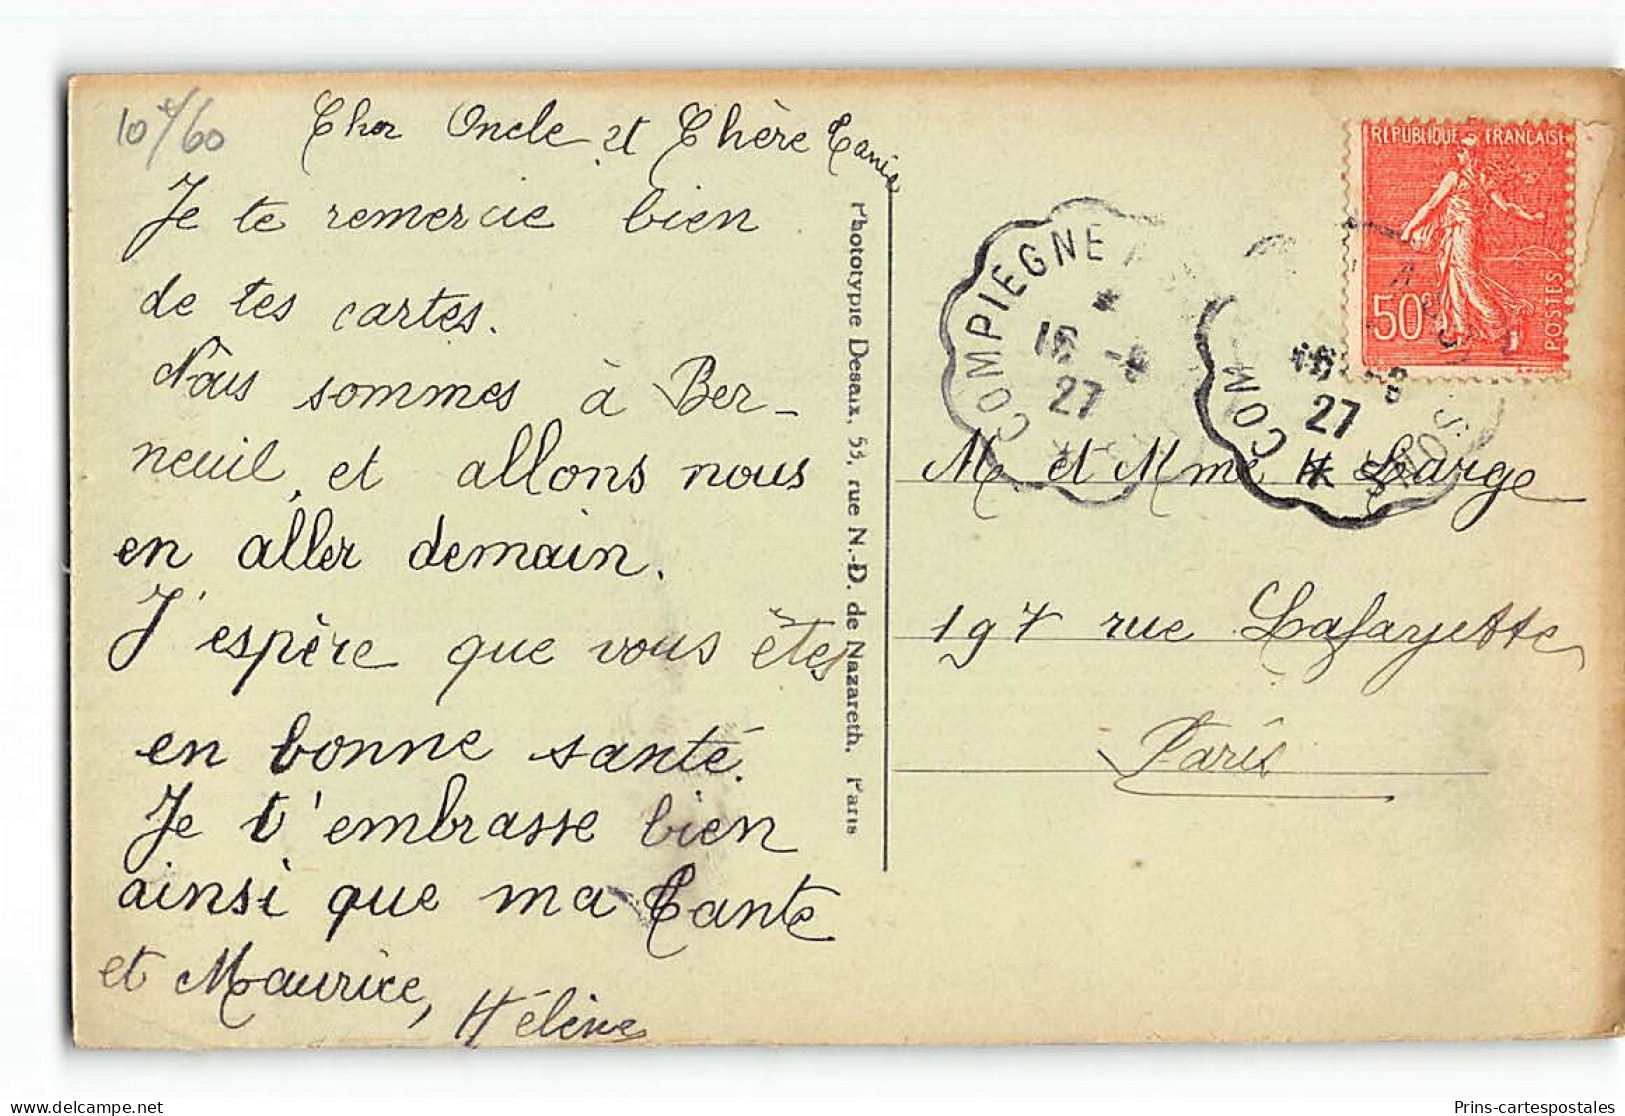 10/60
Cher Oncle et Chère Tante
Je te remercie bien
de tes cartes.
Nous sommes à Ber-
neuil, et allons nous
en aller demain.
J'espère que vous êtes
en bonne santé.
Je t'embrasse bien
ainsi que ma Tante
et Maurice, Hélène
Phototypie Desaix, 55, rue N.-D. de Nazareth, Paris
REPUBLIQUE FRANÇAISE
50c
POSTES
COMPIEGNE
16 -8
27
COM
SOISS
16 -8
27
M. et Mme H Large
197 rue Lafayette
Paris
Prins-cartespostales
delcampe.net